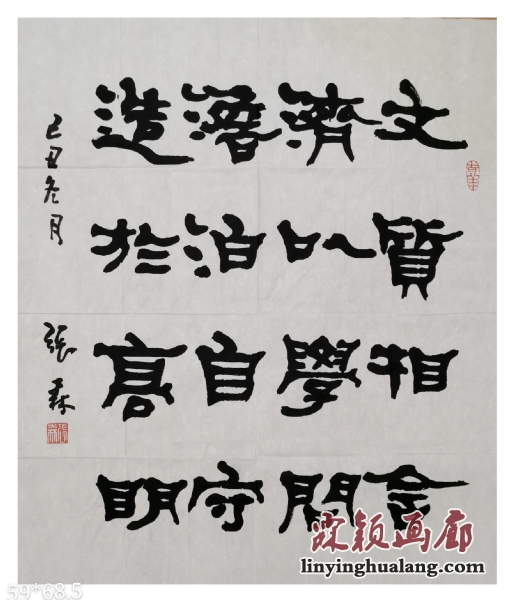 文質相
濟以學問
澹泊自守
造於高明
己丑冬月
張森
張森
霖颖画廊
linyinghualang.com
59*68.5